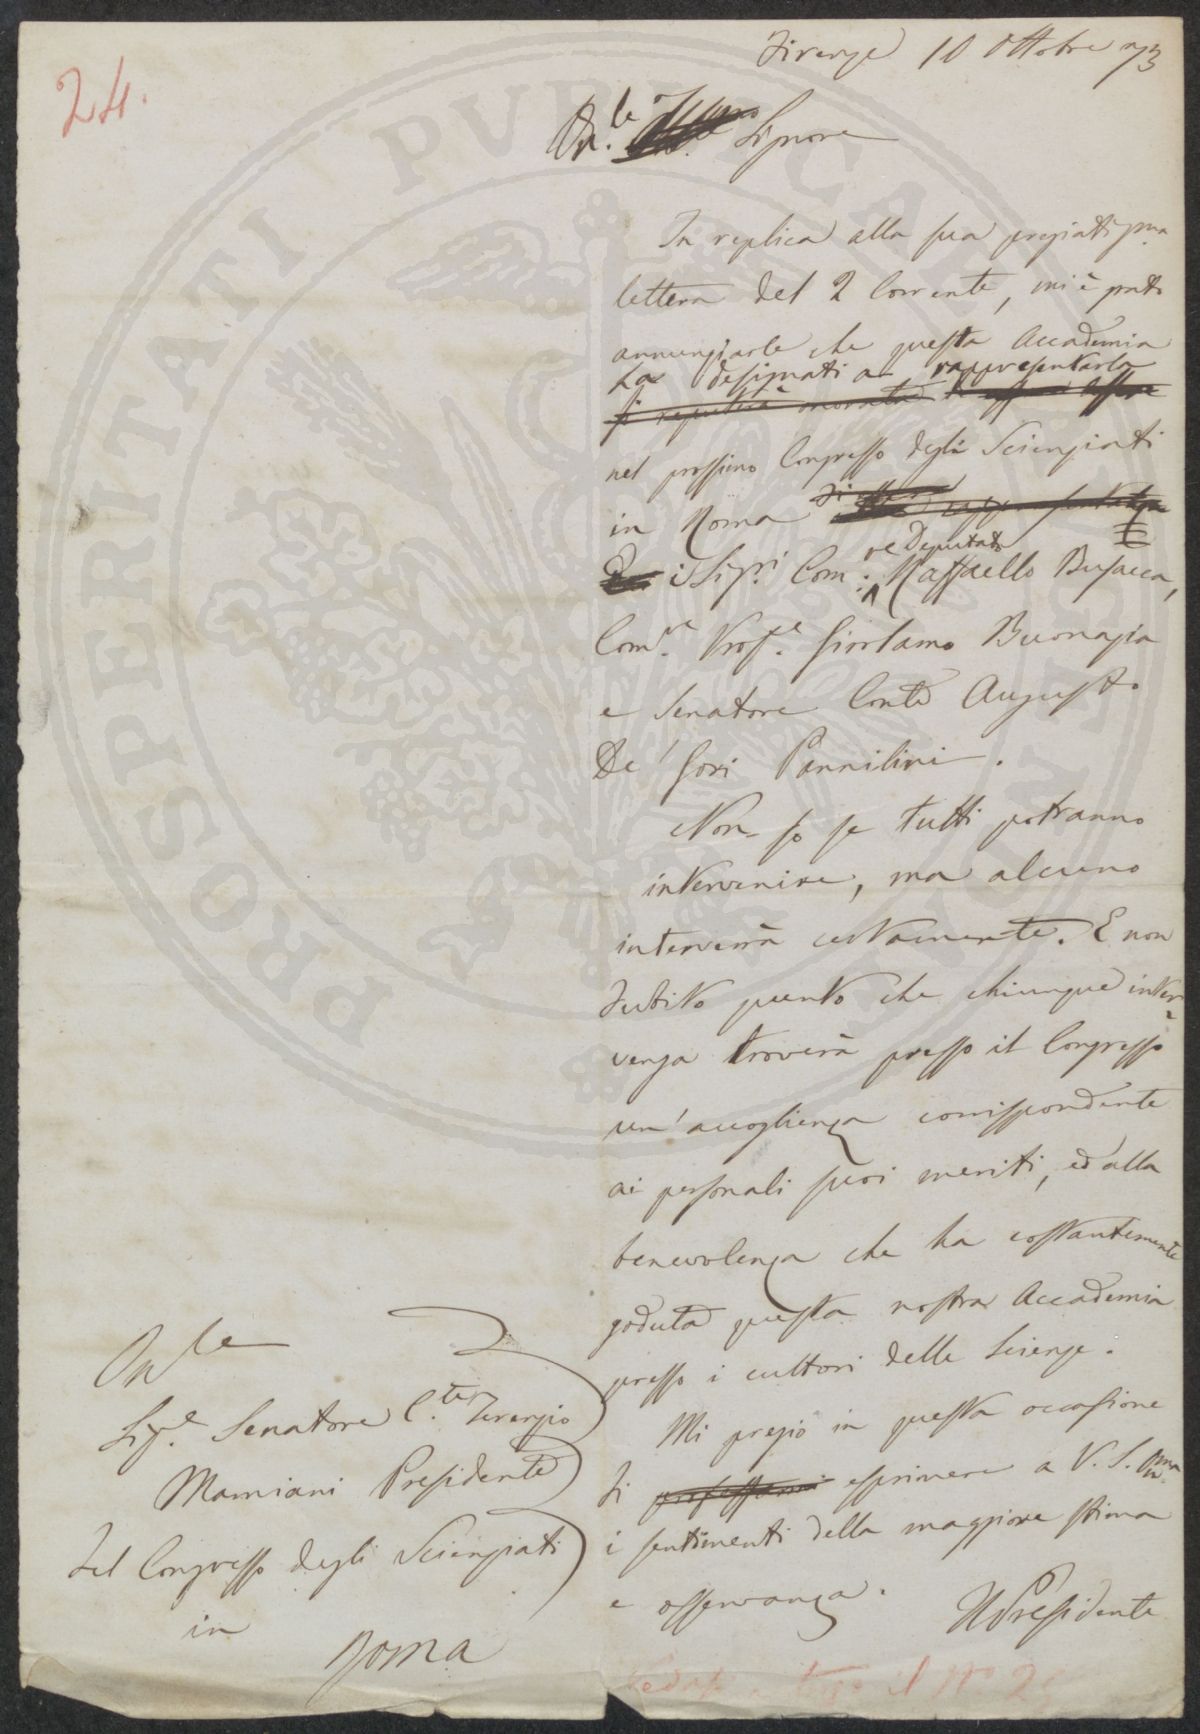 24.
Firenze 10 Ottobre 73
On.le Signore
In replica alla sua pregiatissma
lettera del 2 Corrente, mi è grato
annunziarle che questa Accademia
ha designati a rappresentarla
si reputerà onorata
nel prossimo Congresso degli Scienziati
in Roma
i Sigri Com:re Deputato Raffaello Busacca,
Comre. Profe. Girolamo Buonazia
e Senatore Conte Augusto
De' Gori Pannilini.
Non so se tutti potranno
intervenire, ma alcuno
interverrà certamente. E non
dubito punto che chiunque inter=
venga troverà presso il Congresso
un' accoglienza corrispondente
ai personali suoi meriti, ed alla
benevolenza che ha costantemente
goduta questa nostra Accademia
presso i cultori delle Scienze.
Mi pregio in questa occasione
di professarmi esprimere a V. S. Onma
i sentimenti della maggiore stima
e osservanza.
Il Presidente
Onle
Sige. Senatore C.te Terenzio
Mamiani Presidente
del Congresso degli Scienziati
in
Roma
il No 25
PROSPERITATI PVBLICAE AVGENDAE